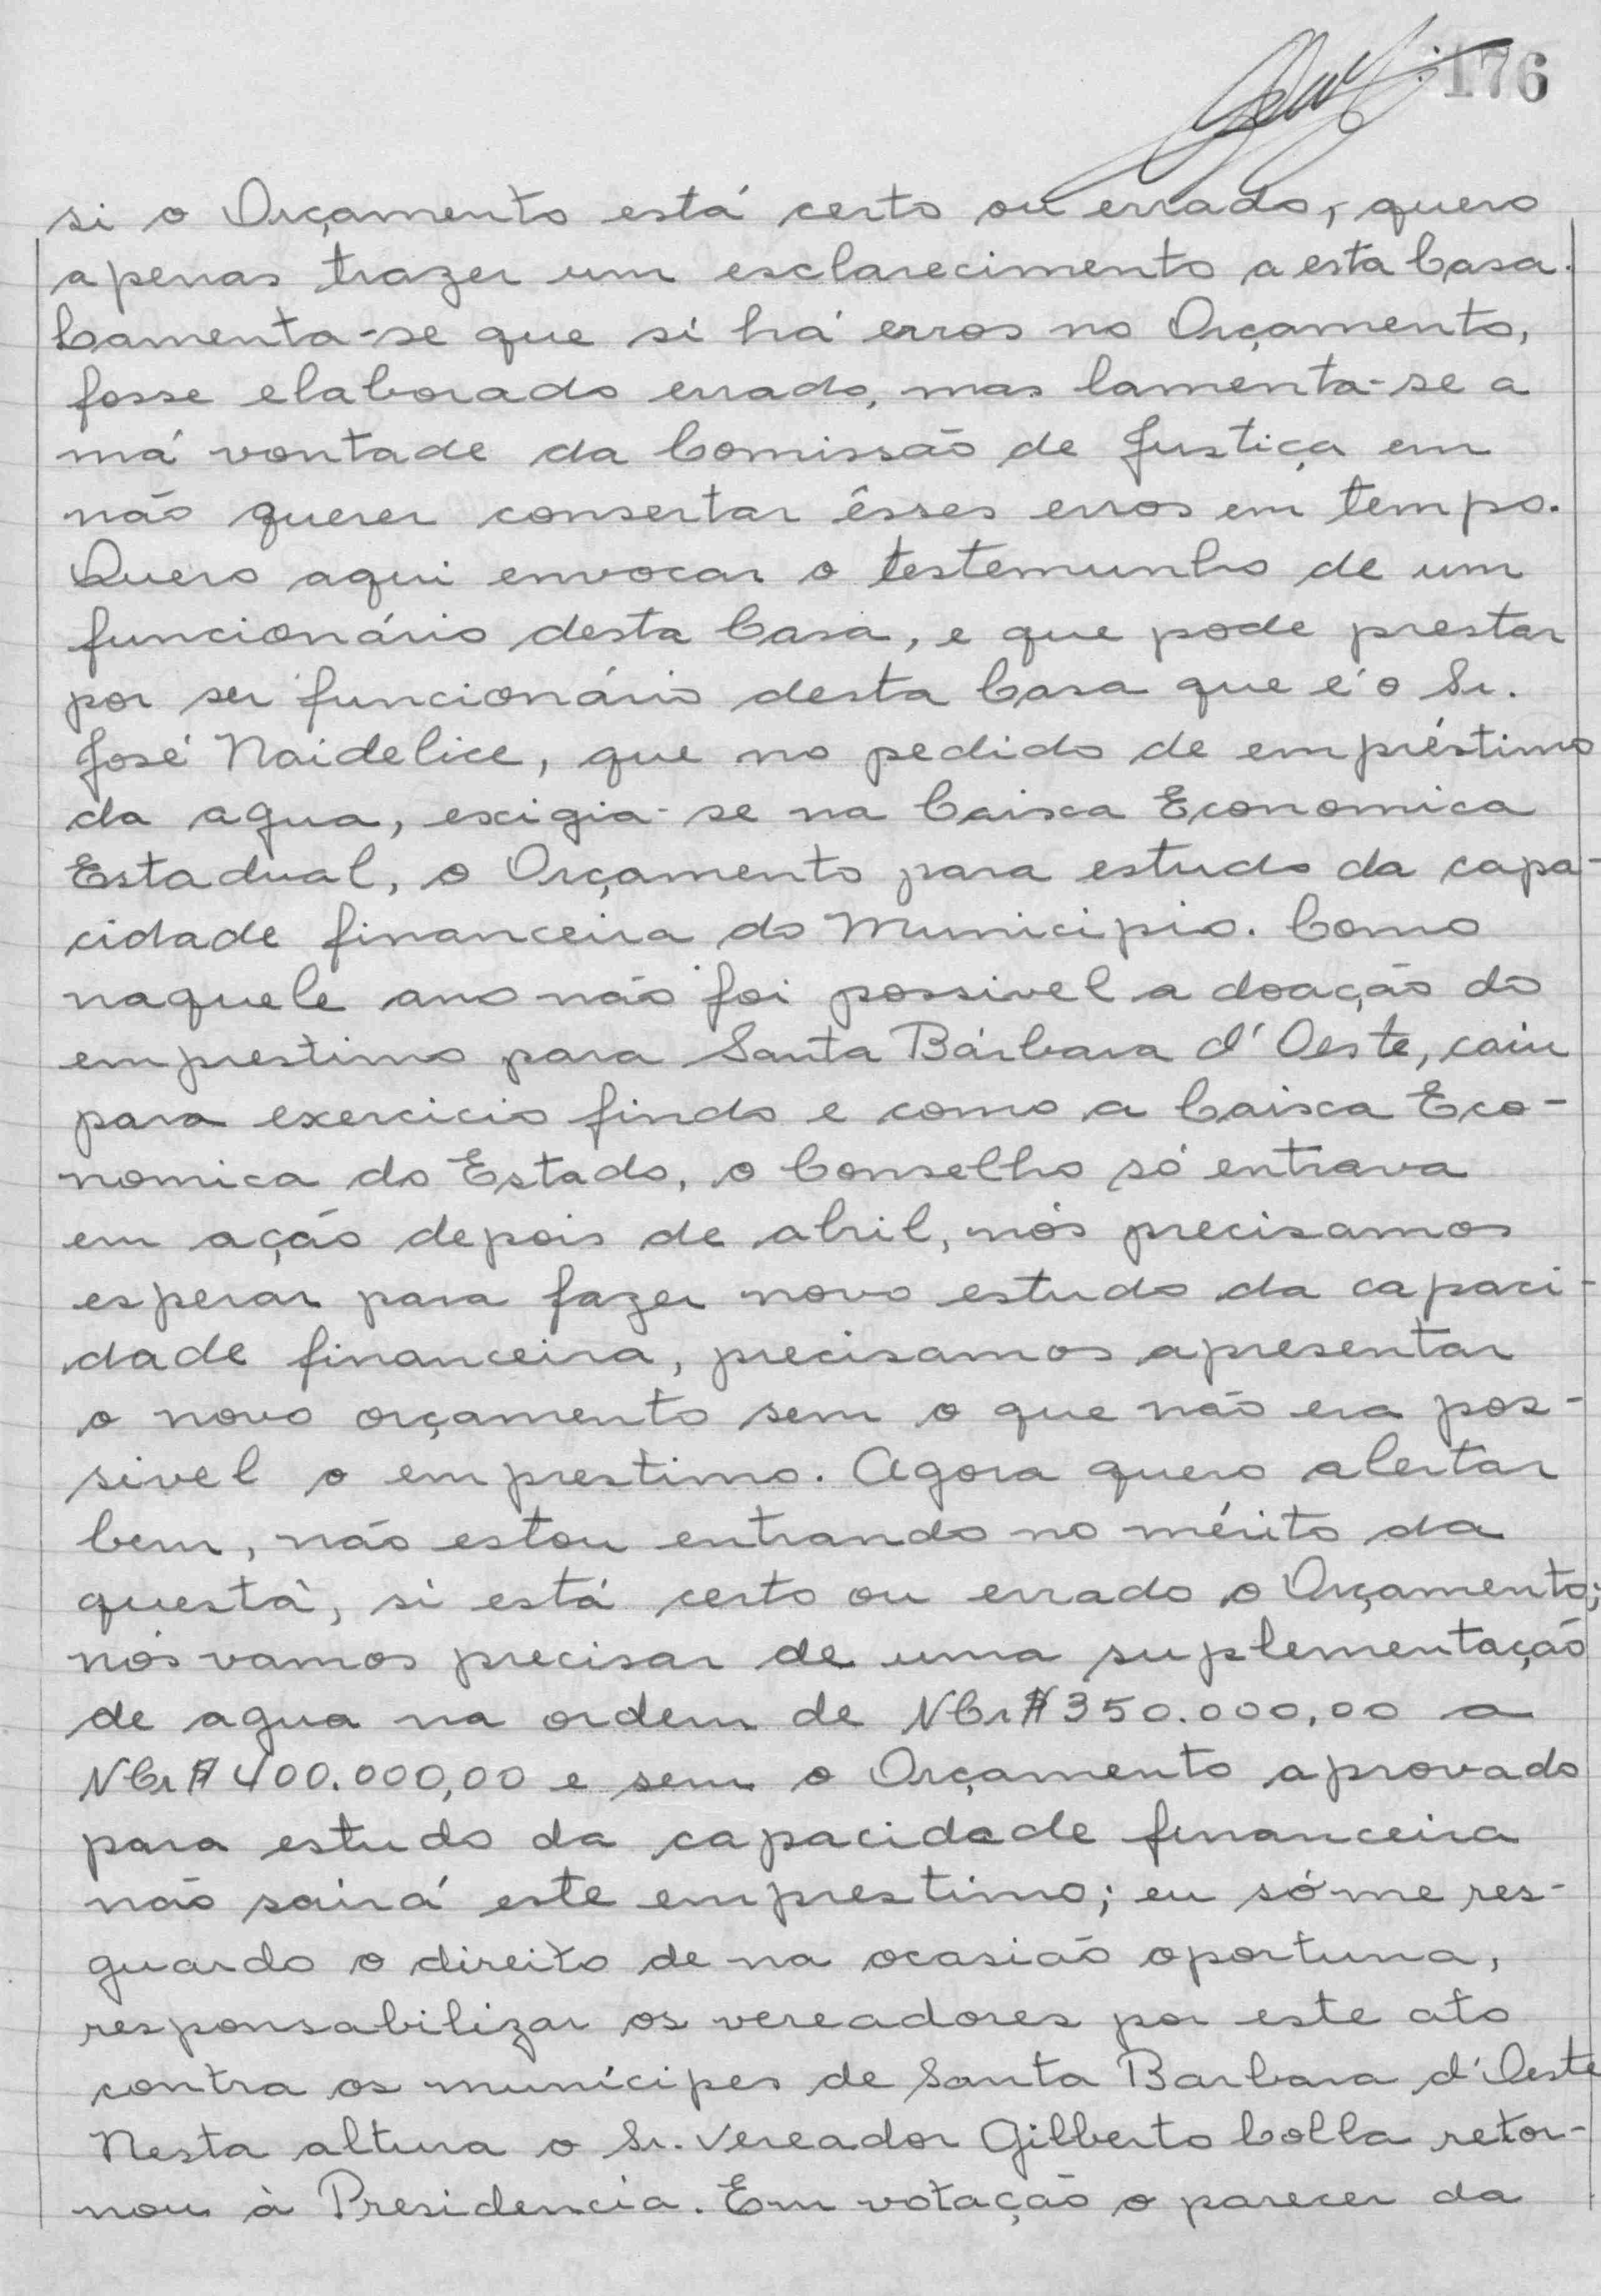 176
si o Orçamento está certo ou errado, quero
apenas trazer um esclarecimento a esta Casa.
Lamenta-se que si há erros no Orçamento,
fosse elaborado errado, mas lamenta-se a
má vontade da Comissão de Justiça em
não querer consertar êsses erros em tempo.
Quero aqui envocar o testemunho de um
funcionário desta Casa, e que pode prestar
por ser funcionário desta Casa que é o Sr.
José Naidelice, que no pedido de empréstimo
da agua, exigia-se na Caixa Economica
Estadual, o Orçamento para estudo da capa-
cidade financeira do Municipio. Como
naquele ano não foi possivel a doação do
emprestimo para Santa Bárbara d'Oeste, caiu
para exercicio findo e como a Caixa Eco-
nomica do Estado, o Conselho só entrava
em ação depois de abril, nós precisamos
esperar para fazer novo estudo da capaci-
dade financeira, precisamos apresentar
o novo orçamento sem o que não era pos-
sivel o emprestimo. Agora quero alertar
bem, não estou entrando no mérito da
questã, si está certo ou errado o Orçamento;
nós vamos precisar de uma suplementação
de agua na ordem de NCr$350.000,00 a
NCr$400.000,00 e sem o Orçamento aprovado
para estudo da capacidade financeira
não sairá este emprestimo; eu só me res-
guardo o direito de na ocasião oportuna,
responsabilizar os vereadores por este ato
contra os munícipes de Santa Barbara d'Oeste
Nesta altura o Sr. Vereador Gilberto Colla retor-
nou à Presidencia. Em votação o parecer da